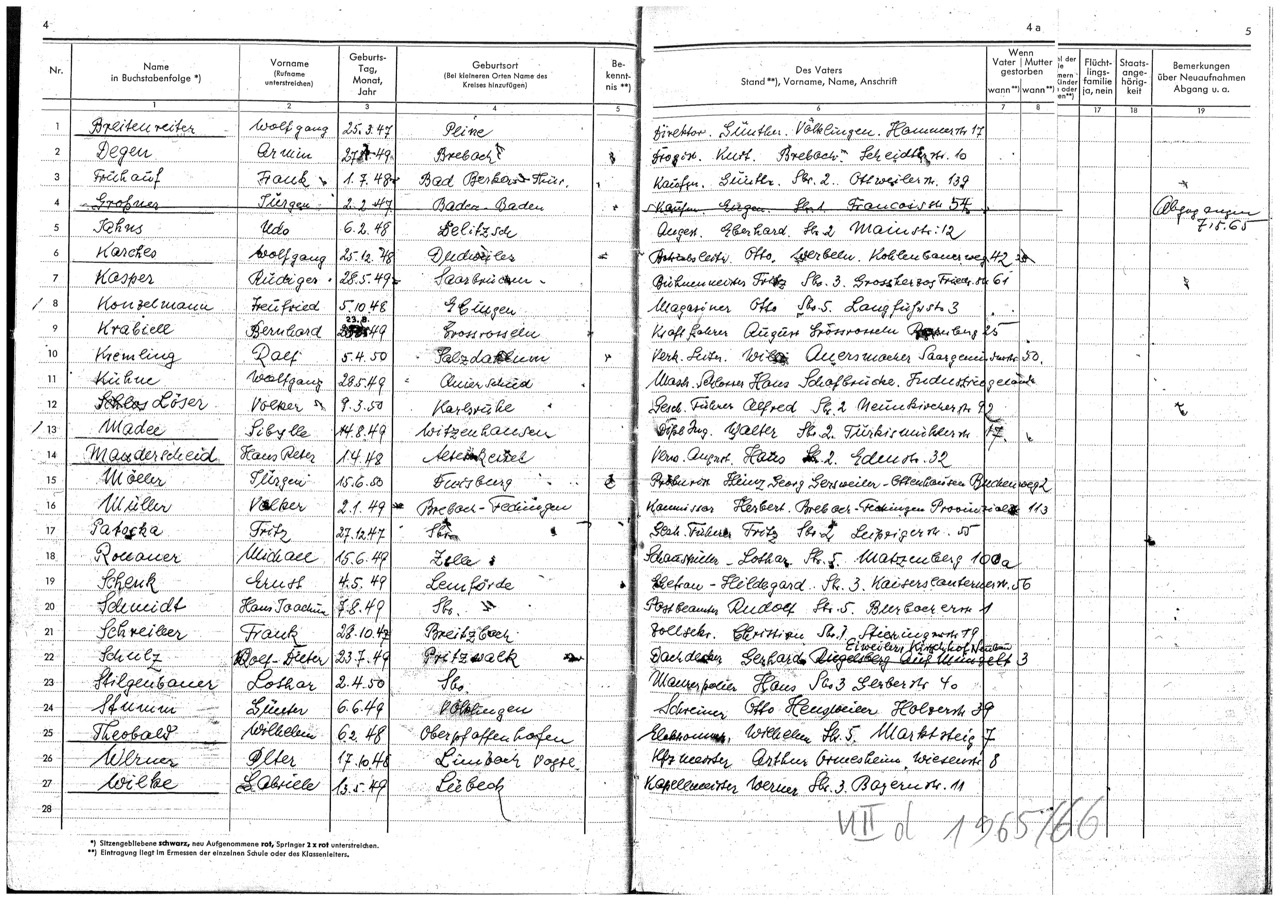 4
4a
5
Nr.
Name in Buchstabenfolge *)
Vorname (Rufname unterstreichen)
Geburts-Tag, Monat, Jahr
Geburtsort (Bei kleineren Orten Name des Kreises hinzufügen)
Be-kennt-nis **)
Des Vaters Stand **), Vorname, Name, Anschrift
Wenn Vater | Mutter gestorben wann **) wann **)
Flücht-lings-familie ja, nein
Staats-ange-hörig-keit
Bemerkungen über Neuaufnahmen Abgang u. a.
1 2 3 4 5 6 7 8 17 18 19
1 Breitenreiter Wolfgang 25.3.47 Peine Direktor. Günther. Völklingen. Hammerstr 17
2 Degen Armin Brebach Drogist. Kurt. Brebach. Scheidterstr. 10
3 Frühauf Frank 1.7.48 Bad Berka Thür. Kaufm. Günth. Sbr. 2. Ottweilerstr. 139
4 Großner Jürgen 2.2.47 Baden-Baden Kaufm. Eugen. Sbr. 1 Francoisstr 54 Abgegangen 7.5.65
5 Jahns Udo 6.2.48 Delitzsch Angest. Eberhard. Sbr. 2 Mainstr. 12
6 Karches Wolfgang 25.12.48 Dudweiler Otto. Kohlenbauerweg 42
7 Kasper Rüdiger 28.5.49 Saarbrücken Bühnenmeister Fritz Sbr. 3. Grossherzog Friedr. str 61
8 Konzelmann Freufried 5.10.48 Ebingen Magaziner Otto Sbr. 5. Langfuhrstr 3
9 Krabiell Bernhard 23.8.49 Grossrosseln Kraftfahrer August Grossrosseln 25
10 Kremling Ralf 5.4.50 Salzdahlum Verk. Leiter. Willi Auersmacher Saargemünderstr 50.
11 Kühne Wolfgang 28.5.49 Masch. Schlosser Hans Schafbrücke. Industriegelände
12 Löser Volker 9.3.50 Karlsruhe Gesch. Führer Alfred Sbr. 2 Neunkircherstr 92
13 Madee Sibylle 14.8.49 Witzenhausen Dipl. Ing. Walter Sbr. 2. Türkismühlerstr 17.
14 Manderscheid Hans Peter 1.4.48 Verw. Angest. Hans Sbr. 2. Edenstr. 32
15 Möller Jürgen 15.6.50 Duisburg Prokurist Heinz Georg Gersweiler-Ottenhausen Buchenweg 2
16 Müller Volker 2.1.49 Brebach-Fechingen Kommissar Herbert. Brebach-Fechingen 113
17 Patocka Fritz 27.12.47 Sbr. Gesch. Führer Fritz Sbr. 2 Leipzigerstr. 55
18 Ronauer Michael 15.6.49 Zella Schausteller - Lothar Sbr. 5. Matzenberg 100a
19 Schenk Ernst 4.5.49 Lemförde Ehefrau - Hildegard. Sbr. 3. Kaiserslauternerstr. 56
20 Schmidt Hans Joachim 7.8.49 Sbr. Postbeamter Rudolf Sbr. 5. Burbacherstr 1
21 Schreiber Frank 28.10.47 Breitzbach Zollsekr. Christian Sbr. 1 Stieringerstr 19
22 Schulz Rolf-Dieter 23.7.49 Pritzwalk Dachdecker Gerhard Eiweiler, Kirschhof Neubau 3
23 Stilgenbauer Lothar 2.4.50 Sbr. Maurerpolier Hans Sbr. 3 Gerberstr 40
24 Stumm Günter 6.6.49 Völklingen Schreiner Otto Heusweiler Holzerstr 39
25 Theobald Wilhelm 6.2.48 Oberpfaffenhofen Elektromstr. Wilhelm Sbr. 5. Marktsteig 7
26 Werner Peter 17.10.48 Limbach Vogtl. Kfzmeister Arthur Ormesheim, Wiesenstr 8
27 Wilke Gabriele 13.5.49 Lübeck Kapellmeister Werner Sbr. 3. Bayernstr. 11
28
VII d 1965/66
*) Sitzengebliebene schwarz, neu Aufgenommene rot, Springer 2 x rot unterstreichen.
**) Eintragung liegt im Ermessen der einzelnen Schule oder des Klassenleiters.